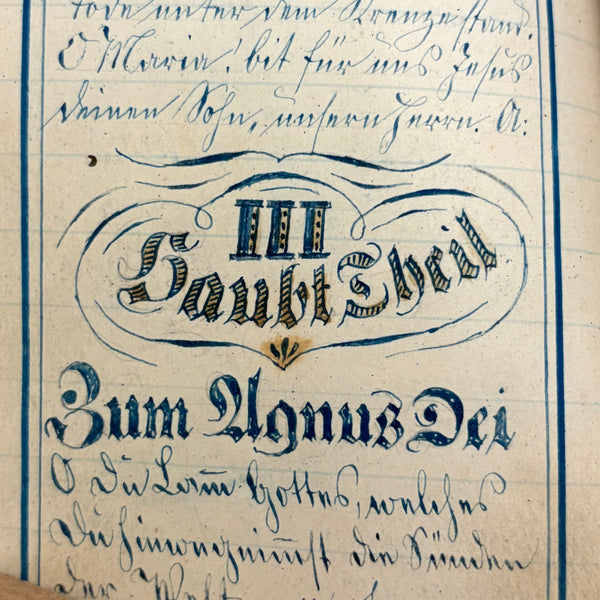 tode unter dem Kreuze stand.
O Maria! bit für uns Jesus
deinen Sohn, unsern Herrn. A:
III
Haubt Theil
Zum Agnus Dei
O Du Lam̅ Gottes, welches
Du hinwegnim̅st die Sünden
der Welt